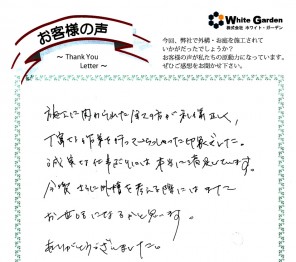 お客様の声
～ Thank You
Letter ～
White Garden
株式会社 ホワイト・ガーデン
今回、弊社で外構・お庭を施工されて
いかがだったでしょうか？
お客様の声が私たちの原動力になっています。
ぜひご感想をお聞かせ下さい。
施工に関わられた全ての方が礼儀正しく、
丁寧な作業を行っていらっしゃった印象でした。
誠実な仕事ぶりには本当に満足しています。
今後さらに外構を考える際にはまた
お世話になるかと思います。
ありがとうございました。